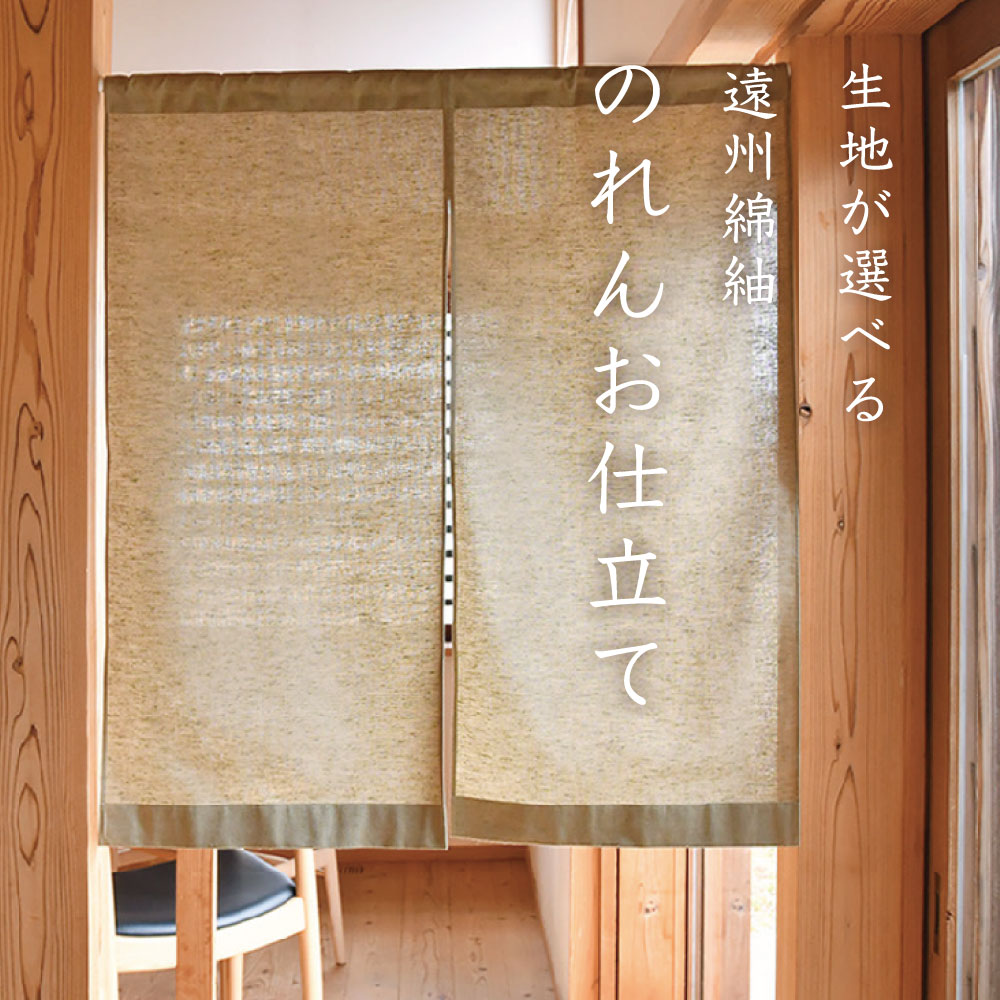 生地が選べる
遠州綿紬
のれんお仕立て